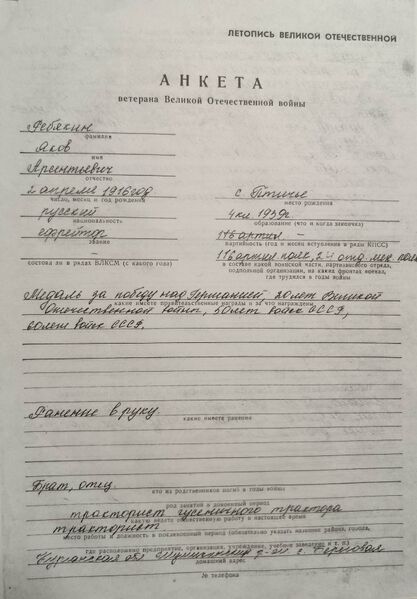 ЛЕТОПИСЬ ВЕЛИКОЙ ОТЕЧЕСТВЕННОЙ
АНКЕТА
ветерана Великой Отечественной войны
Ребякин
фамилия
Яков
имя
Арсентьевич
отчество
2 апреля 1916 год
число, месяц и год рождения
с. Птичье
место рождения
русский
национальность
4 кл 1939г
образование (что и когда закончил)
ефрейтор
звание
партийность (год и месяц вступления в ряды КПСС)
—
состоял ли в рядах ВЛКСМ (с какого года)
в составе какой воинской части, партизанского отряда,
подпольной организации, на каких фронтах воевал,
где трудился в годы войны
Медаль за победу над Германией, 20 лет Великой
какие имеете правительственные награды и за что награждены
Отечественной войны, 50 лет войск СССР,
войск СССР.
Ранение в руку.
какие имеете ранения
Брат, отец.
кто из родственников погиб в годы войны
род занятий в довоенный период
тракторист гусеничного трактора
какую ведете общественную работу в настоящее время
тракторист
место работы и должность в послевоенный период (обязательно указать название района, города,
где расположено предприятие, организация, учреждение, учебное заведение и т. п.)
Курганская обл
домашний адрес
№ телефона